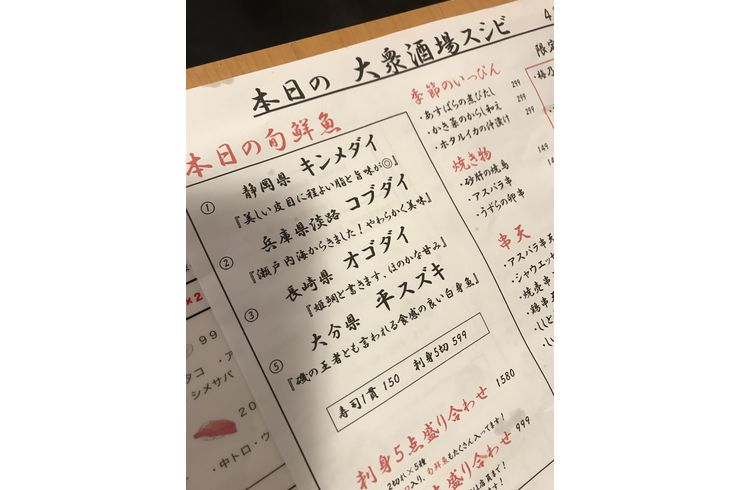 本日の 大衆酒場スシビ
本日の旬鮮魚
① 静岡県 キンメダイ
『美しい皮目に程よい脂と旨味が◎』
② 兵庫県淡路 コブダイ
『瀬戸内海からきました！やわらかく美味』
③ 長崎県 オゴダイ
『姫鯛と書きます、ほのかな甘み』
⑤ 大分県 平スズキ
『磯の王者とも言われる食感の良い白身魚』
寿司1貫 150 刺身5切 599
刺身5点盛り合わせ 1580
2切れ×5種
旬鮮魚もたくさん入ってます！
点盛り合わせ 999
季節のいっぴん
・あすぱらの煮びたし 299
・かき菜のからし和え 299
・ホタルイカの沖漬け 299
焼き物
・砂肝の焼鳥 149
・アスパラ串
・うずらの卵串
串天
・アスパラ串天
・シャウエッセ
・焼売串
・鶏串天
・ししと
限定
・梅乃
×2
99
タコ ・ア
シメサバ
20
・中トロ・ウ